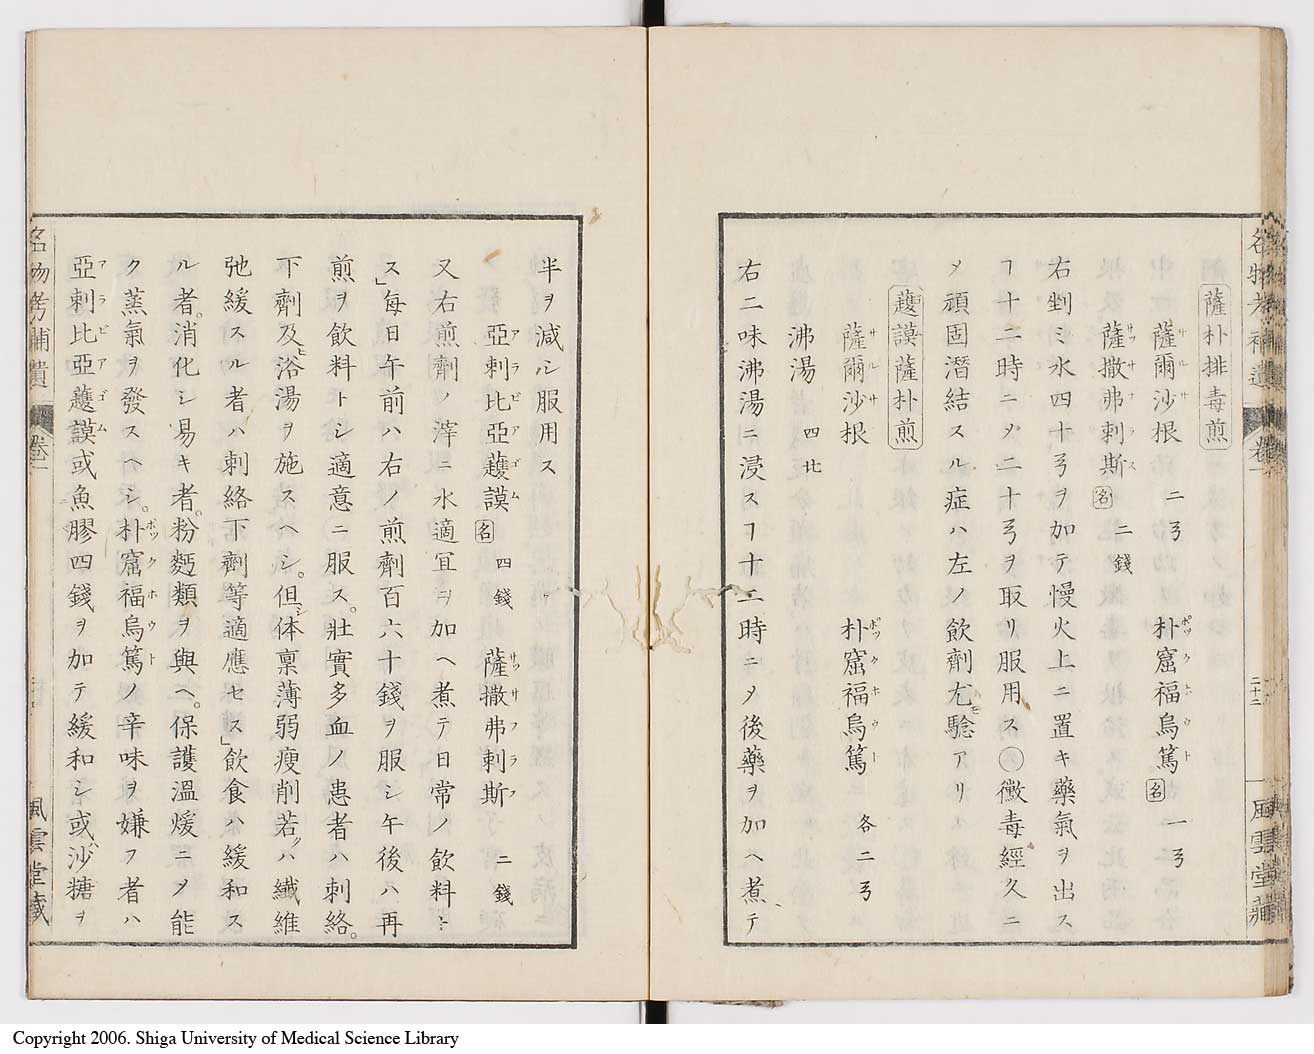 薩朴排毒煎
薩爾沙根 二弓 朴窟福烏篤 名 一弓
サルサ ポックホウト
薩撒弗剌斯 名 二錢
サッサフラス
右剉ミ水四十弓ヲ加テ慢火上ニ置キ藥氣ヲ出ス
ヿ十二時ニメ二十弓ヲ取リ服用ス○黴毒經久ニ
メ頑固潛結スル症ハ左ノ飲劑尤モ驗アリ
護謨薩朴煎
薩爾沙根 朴窟福烏篤 各二弓
サルサ ポックホウト
沸湯 四卄
右二味沸湯ニ浸スヿ十二時ニメ後藥ヲ加ヘ煮テ
名物考補遺 卷一 二十二 風雲堂藏
半ヲ減シ服用ス
亞剌比亞護謨 名 四錢 薩撒弗剌斯 二錢
アラビアゴム サッサフラス
又右煎劑ノ滓ニ水適宜ヲ加ヘ煮テ日常ノ飲料ト
ス」每日午前ハ右ノ煎劑百六十錢ヲ服シ午後ハ再
煎ヲ飲料トシ適意ニ服ス。壯實多血ノ患者ハ刺絡。
下劑及ヒ浴湯ヲ施スヘシ。但シ体稟薄弱瘦削若クハ纎維
弛緩スル者ハ刺絡下劑等適應セス」飲食ハ緩和ス
ル者。消化シ易キ者。粉麪類ヲ與ヘ。保護溫煖ニメ能
ク蒸氣ヲ發スヘシ。朴窟福烏篤ノ辛味ヲ嫌フ者ハ
ポックホウト
亞剌比亞護謨或魚膠四錢ヲ加テ緩和シ或ハ沙糖ヲ
アラビアゴム
名物考補遺 卷一 風雲堂藏
Copyright 2006. Shiga University of Medical Science Library